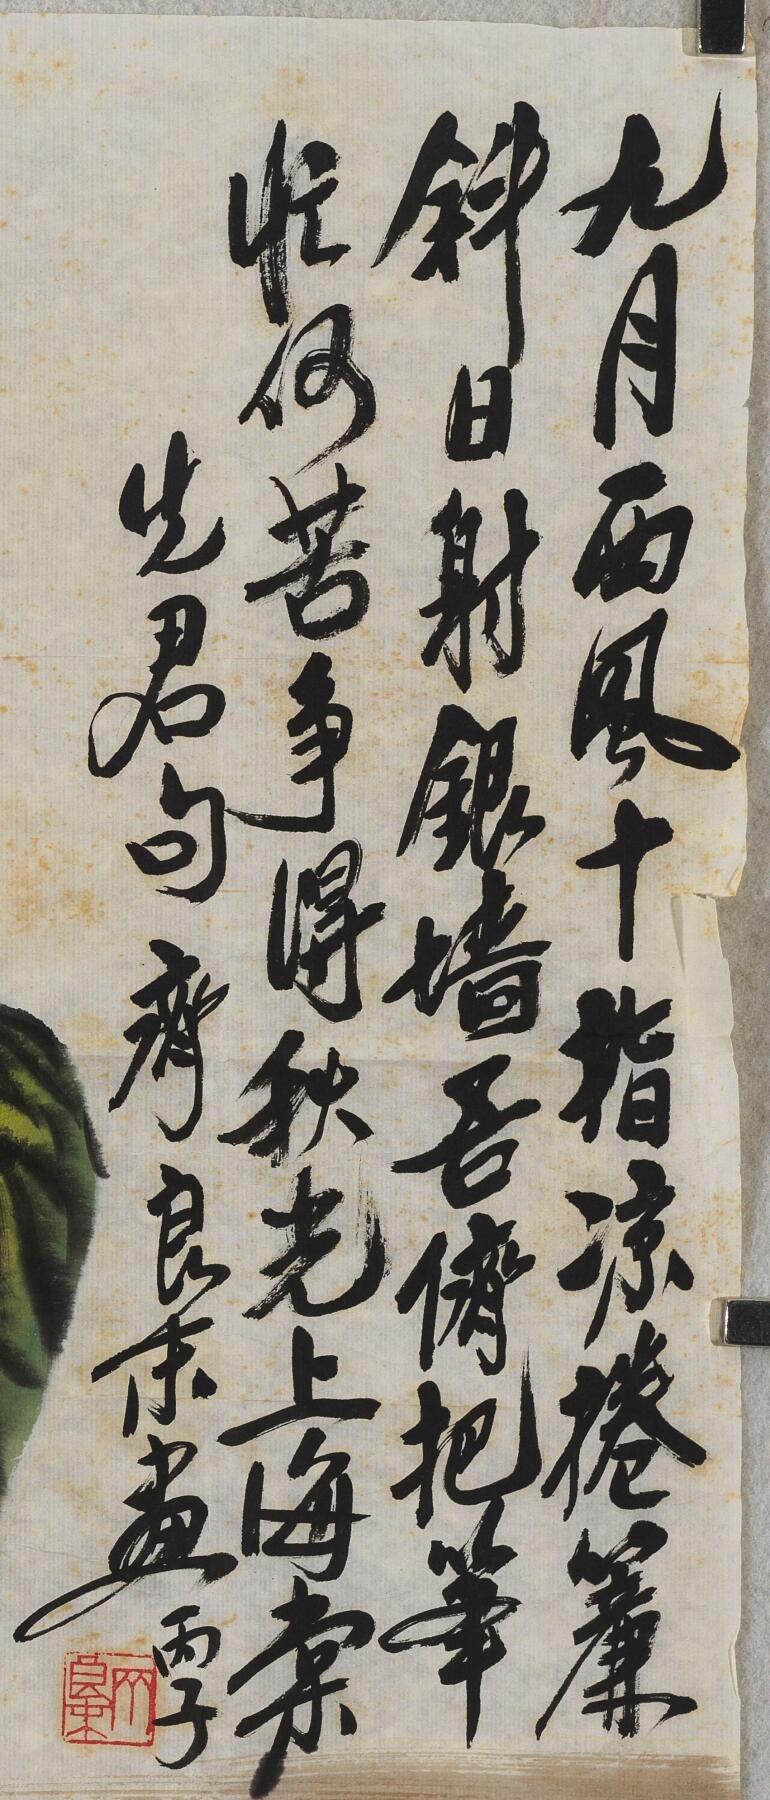 九月西風十指凉捲簾
斜日射銀墙吾儕把筆
忙何苦争得秋光上海棠
先君句齊良末畫丙子